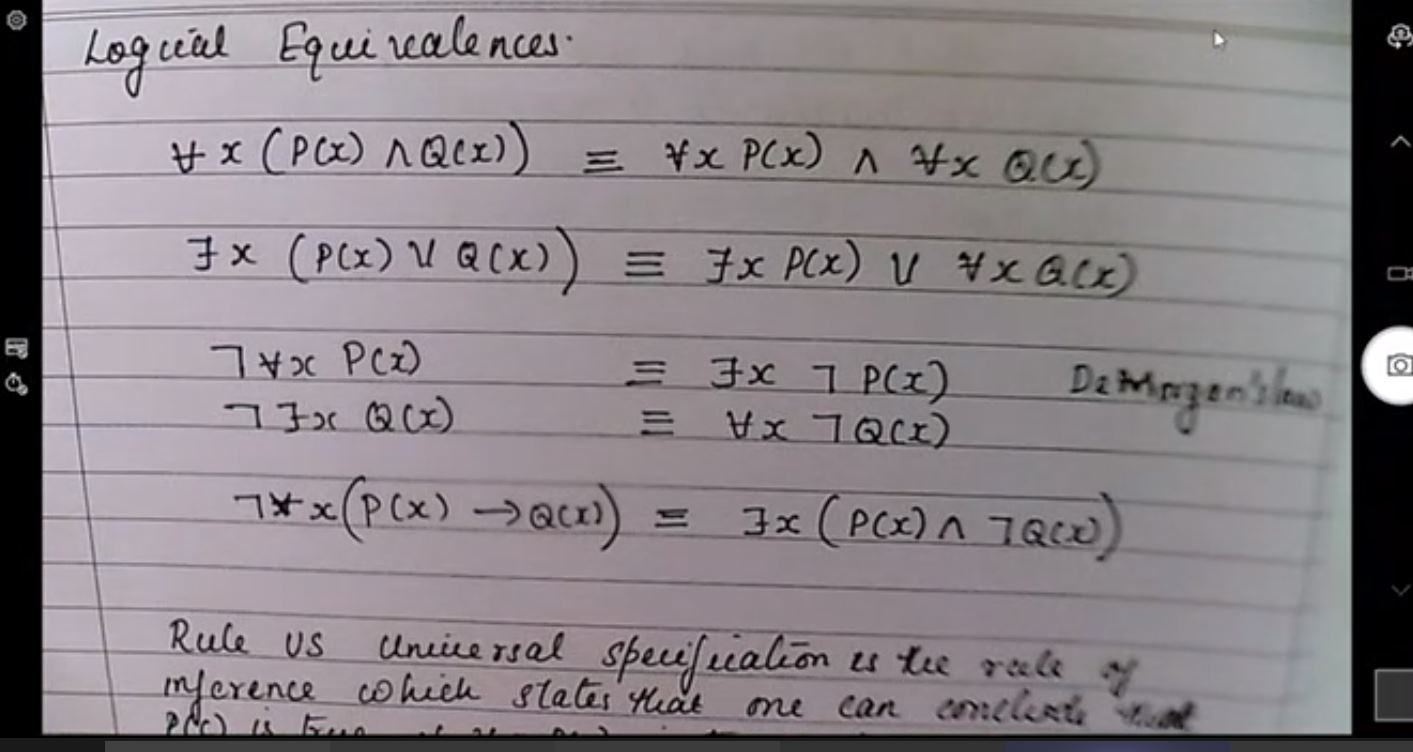 Logical Equivalences.
∀x (P(x) ∧ Q(x)) ≡ ∀x P(x) ∧ ∀x Q(x)
∃x (P(x) ∨ Q(x)) ≡ ∃x P(x) ∨ ∀x Q(x)
¬∀x P(x) ≡ ∃x ¬P(x) De Morgan's law
¬∃x Q(x) ≡ ∀x ¬Q(x)
¬∀x(P(x) → Q(x)) = ∃x (P(x) ∧ ¬Q(x))
Rule US Universal specification is the rule of
inference which states that one can conclude that
P(c) is true